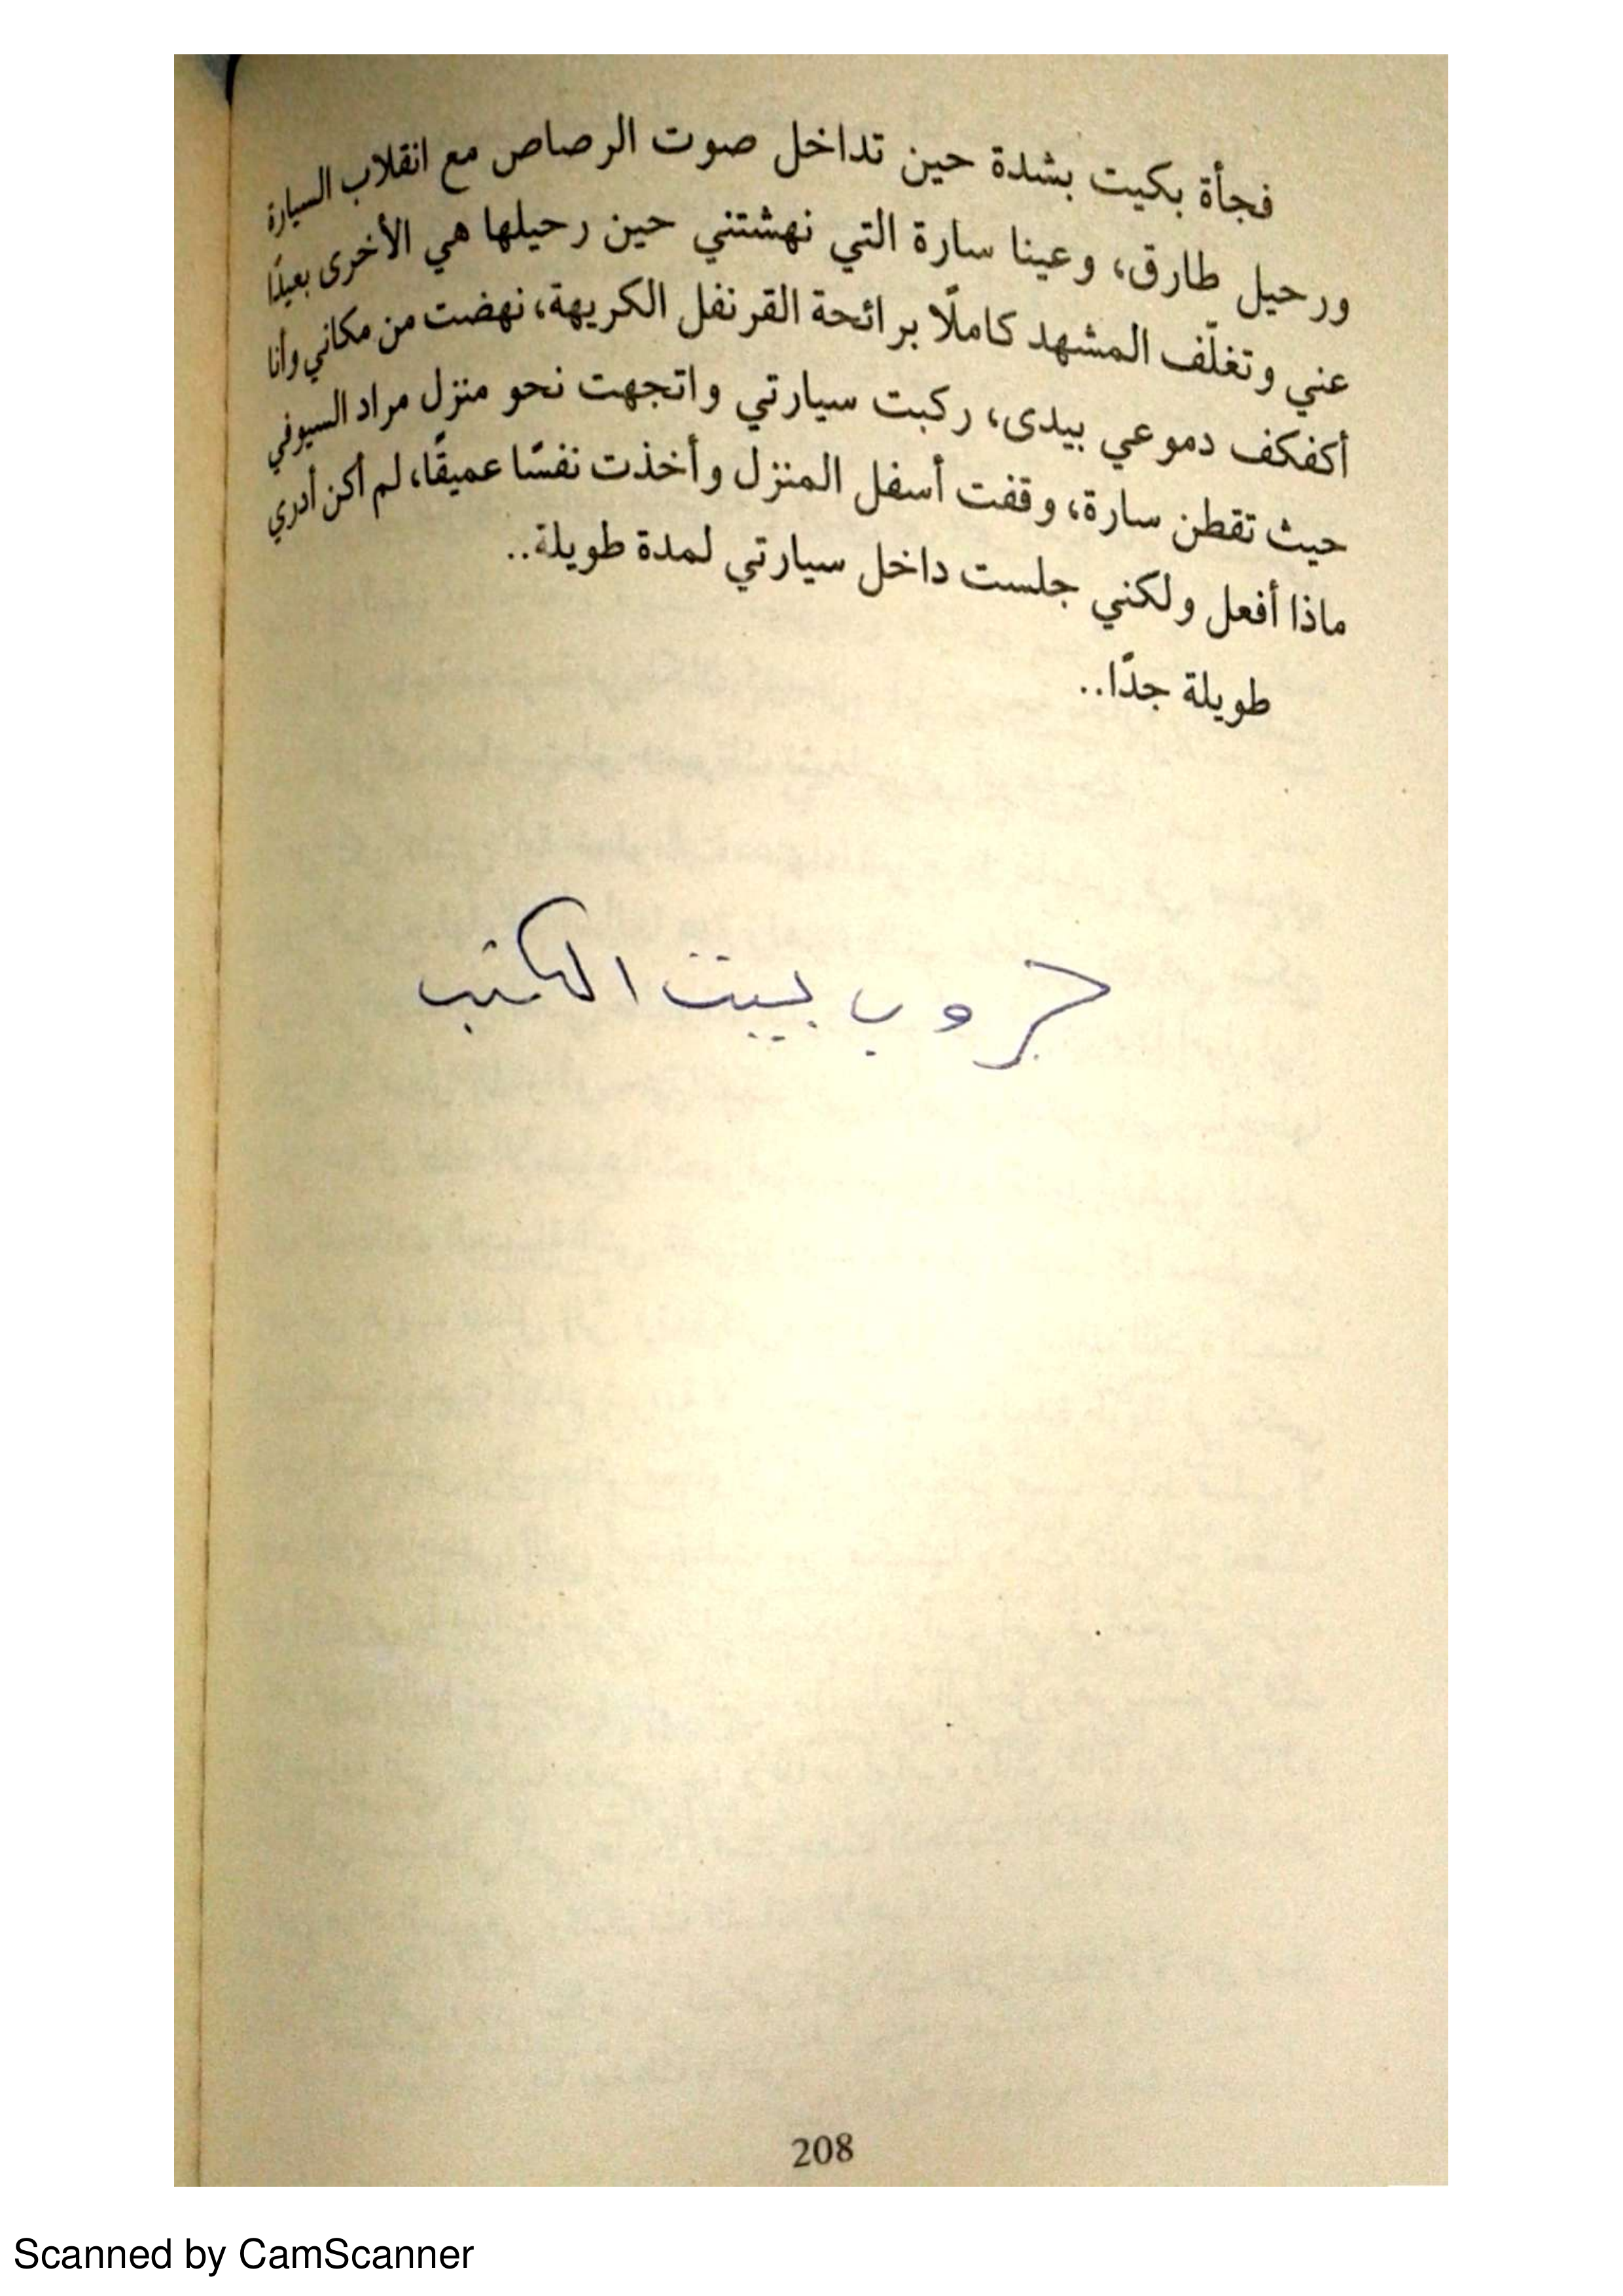 فجأة بكيت بشدة حين تداخل صوت الرصاص مع انقلاب السيارة
ورحيل طارق، وعينا سارة التي نهشتني حين رحيلها هي الأخرى بعيدًا
عني وتغلّف المشهد كاملًا برائحة القرنفل الكريهة، نهضت من مكاني وأنا
أكفكف دموعي بيدى، ركبت سيارتي واتجهت نحو منزل مراد السيوفي
حيث تقطن سارة، وقفت أسفل المنزل وأخذت نفسًا عميقًا، لم أكن أدري
ماذا أفعل ولكني جلست داخل سيارتي لمدة طويلة..
طويلة جدًا..
جروب بيت الكتب
208
Scanned by CamScanner